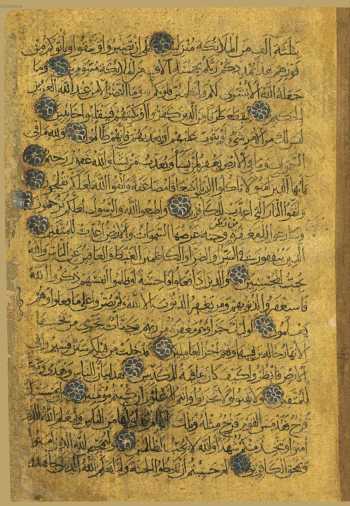 بثلثة آلاف من الملائكة منزلين بلى إن تصبروا وتتقوا ويأتوكم من
فورهم هذا يمددكم ربكم بخمسة آلاف من الملائكة مسومين وما
جعله الله إلا بشرى لكم ولتطمئن قلوبكم به وما النصر إلا من عند الله العزيز
الحكيم ليقطع طرفا من الذين كفروا أو يكبتهم فينقلبوا خائبين
ليس لك من الأمر شيء أو يتوب عليهم أو يعذبهم فإنهم ظالمون ولله ما في
السموات وما في الأرض يغفر لمن يشاء ويعذب من يشاء والله غفور رحيم
يا أيها الذين آمنوا لا تأكلوا الربا أضعافا مضاعفة واتقوا الله لعلكم تفلحون
واتقوا النار التي أعدت للكافرين وأطيعوا الله والرسول لعلكم ترحمون
وسارعوا إلى مغفرة من ربكم وجنة عرضها السموات والأرض أعدت للمتقين
الذين ينفقون في السراء والضراء والكاظمين الغيظ والعافين عن الناس والله
يحب المحسنين والذين إذا فعلوا فاحشة أو ظلموا أنفسهم ذكروا الله
فاستغفروا لذنوبهم ومن يغفر الذنوب إلا الله ولم يصروا على ما فعلوا وهم
يعلمون أولئك جزاؤهم مغفرة من ربهم وجنات تجري من تحتها
الأنهار خالدين فيها ونعم أجر العاملين قد خلت من قبلكم سنن فسيروا في
الأرض فانظروا كيف كان عاقبة المكذبين هذا بيان للناس وهدى وموعظة
للمتقين ولا تهنوا ولا تحزنوا وأنتم الأعلون إن كنتم مؤمنين إن يمسسكم
قرح فقد مس القوم قرح مثله وتلك الأيام نداولها بين الناس وليعلم الله الذين
آمنوا ويتخذ منكم شهداء والله لا يحب الظالمين وليمحص الله الذين آمنوا
ويمحق الكافرين أم حسبتم أن تدخلوا الجنة ولما يعلم الله الذين جاهدوا